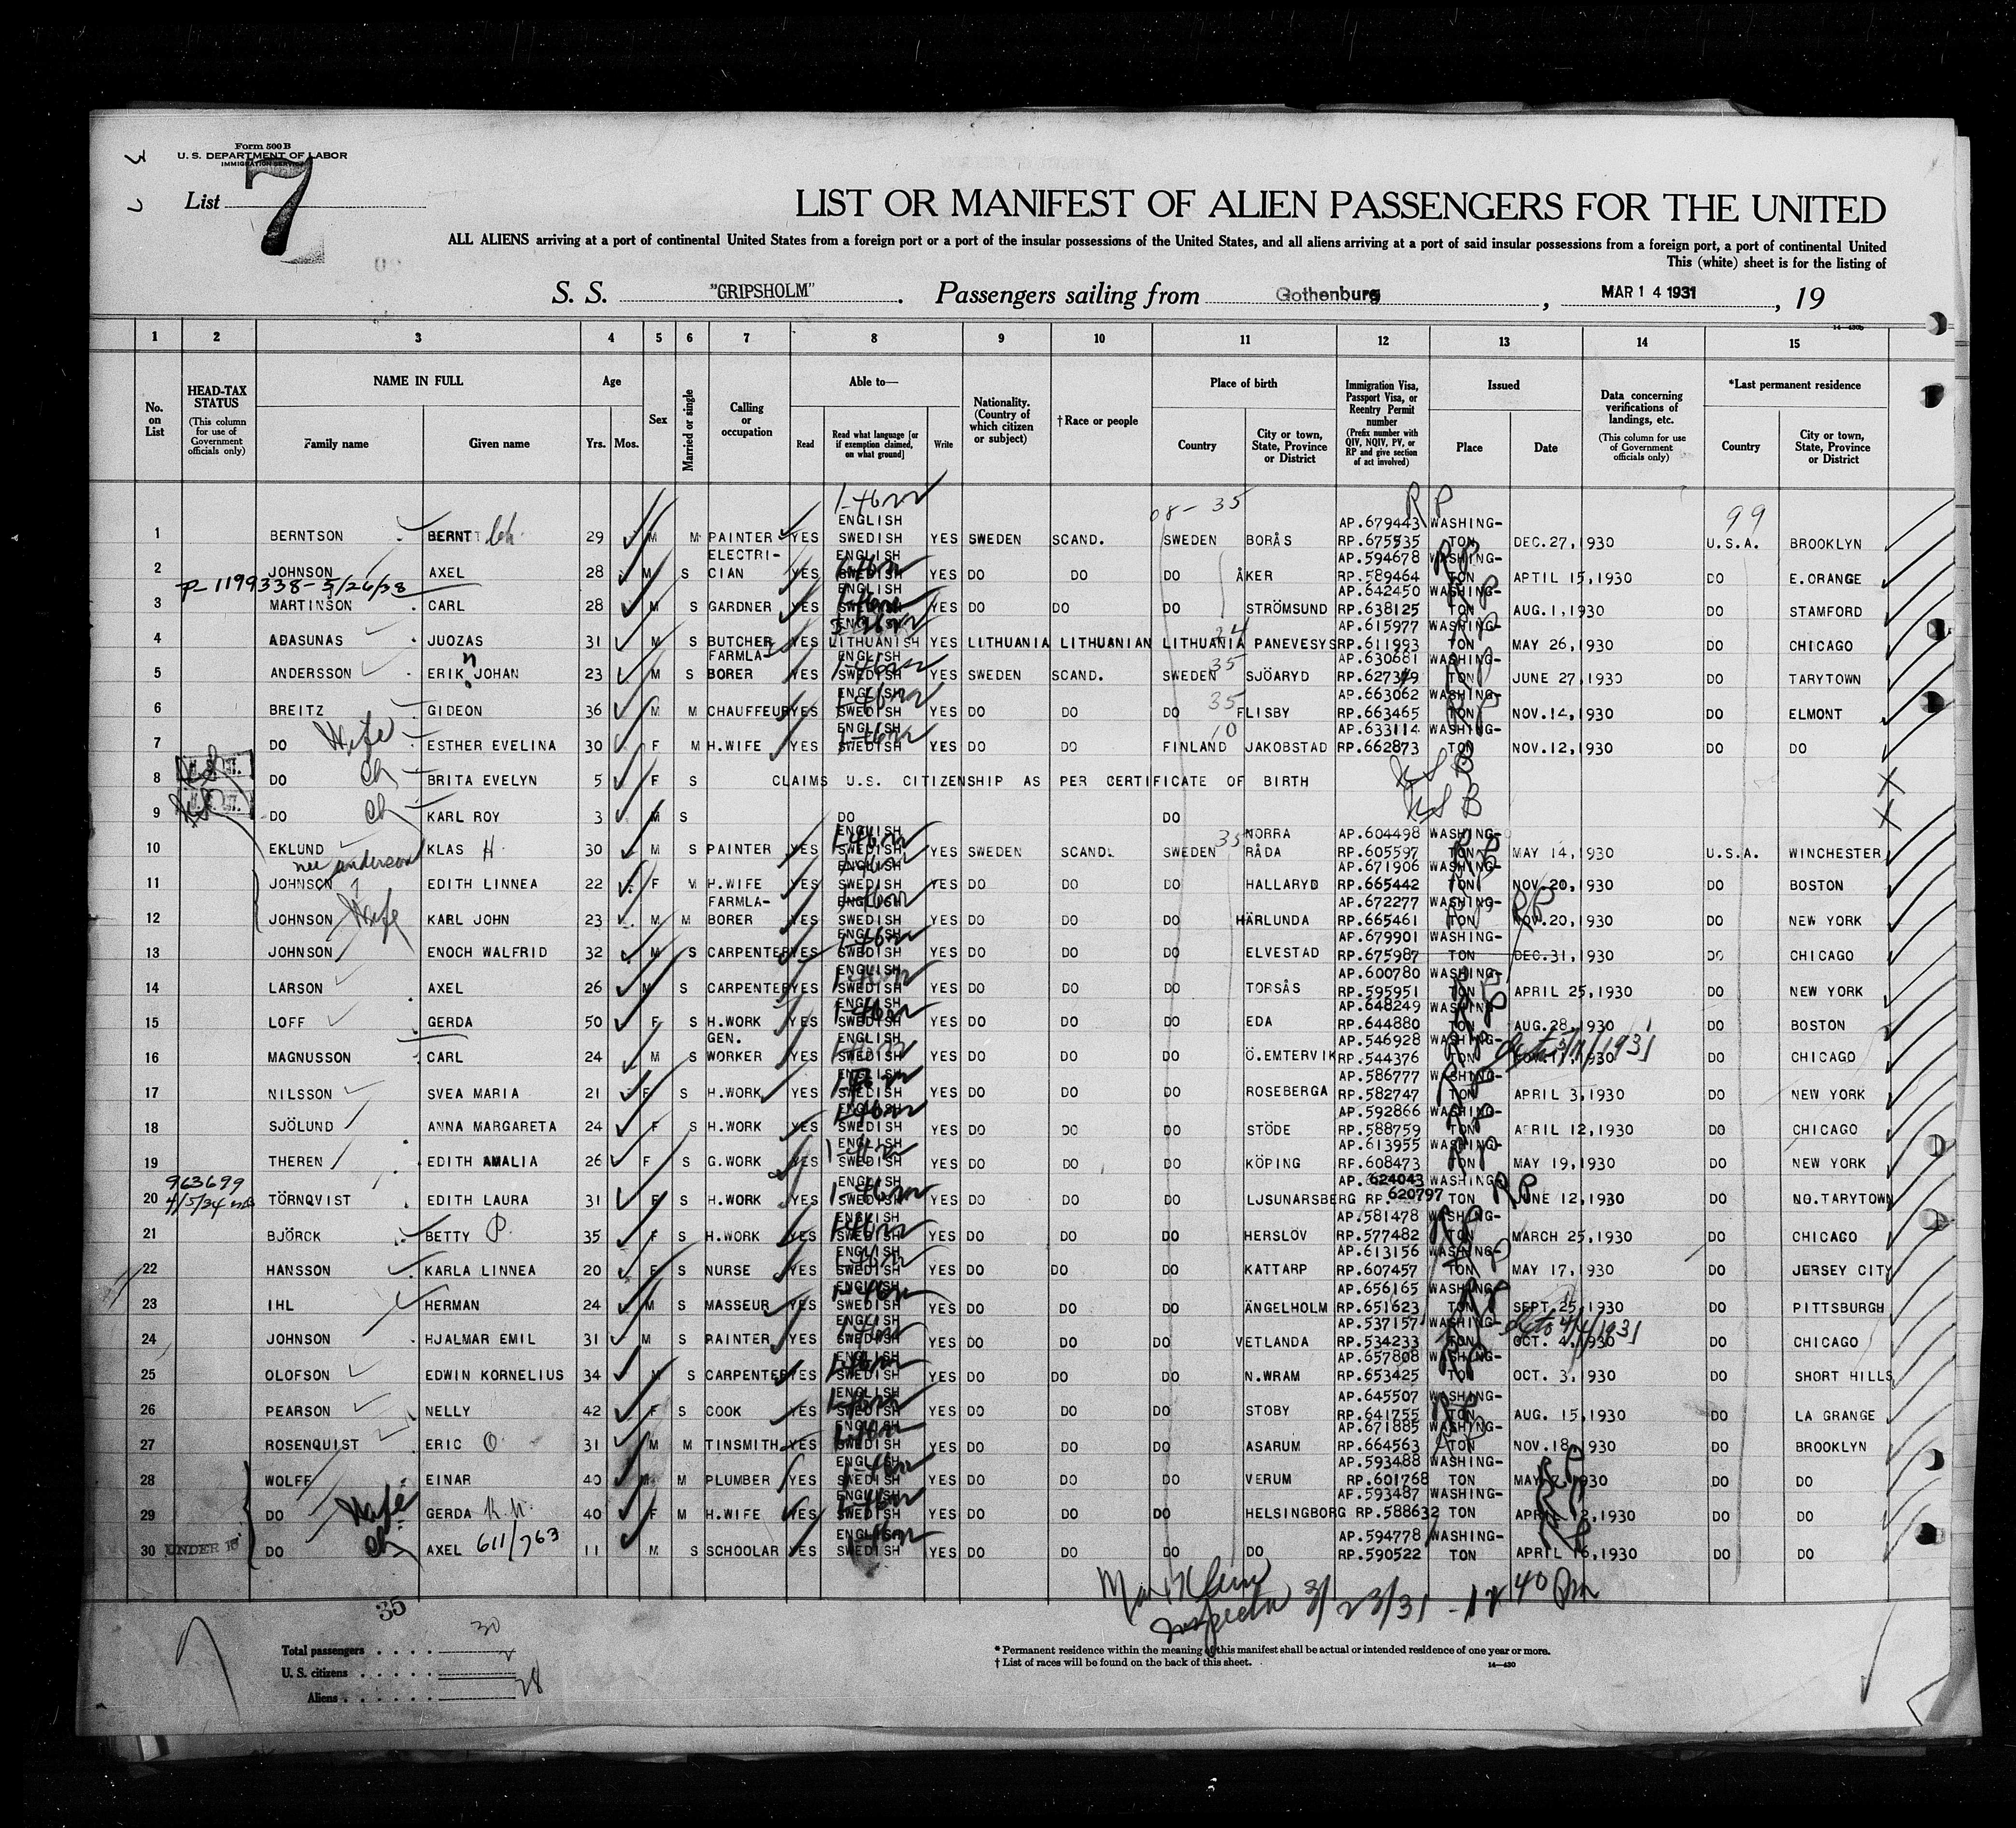 Form 500 B
U. S. DEPARTMENT OF LABOR
IMMIGRATION SERVICE
List 7
LIST OR MANIFEST OF ALIEN PASSENGERS FOR THE UNITED
ALL ALIENS arriving at a port of continental United States from a foreign port or a port of the insular possessions of the United States, and all aliens arriving at a port of said insular possessions from a foreign port, a port of continental United
This (white) sheet is for the listing of
S. S. "GRIPSHOLM". Passengers sailing from Gothenburg, MAR 14 1931, 19
14-430b
1 2 3 4 5 6 7 8 9 10 11 12 13 14 15
No. on List
HEAD-TAX STATUS (This column for use of Government officials only)
NAME IN FULL Family name Given name
Age Yrs. Mos.
Sex
Married or single
Calling or occupation
Able to— Read Read what language [or if exemption claimed, on what ground] Write
Nationality. (Country of which citizen or subject)
†Race or people
Place of birth Country City or town, State, Province or District
Immigration Visa, Passport Visa, or Reentry Permit number (Prefix number with QIV, NQIV, PV, or RP and give section of act involved)
Issued Place Date
Data concerning verifications of landings, etc. (This column for use of Government officials only)
*Last permanent residence Country City or town, State, Province or District
08-35 RP 99
1 BERNTSON BERNT 29 M M PAINTER YES ENGLISH SWEDISH YES SWEDEN SCAND. SWEDEN BORÅS AP.679443 RP.675535 WASHINGTON DEC.27,1930 U.S.A. BROOKLYN
2 JOHNSON AXEL 28 M S ELECTRI-CIAN YES ENGLISH SWEDISH YES DO DO DO ÅKER AP.594678 RP.589464 WASHING-TON APRIL 15,1930 DO E.ORANGE
P-1199338-5/26/38
3 MARTINSON CARL 28 M S GARDNER YES ENGLISH SWEDISH YES DO DO DO STRÖMSUND AP.642450 RP.638125 WASHING-TON AUG.1,1930 DO STAMFORD
4 ADASUNAS JUOZAS 31 M S BUTCHER YES ENGLISH LITHUANISH YES LITHUANIA LITHUANIAN LITHUANIA PANEVESYS AP.615977 RP.611993 WASHING-TON MAY 26,1930 DO CHICAGO
5 ANDERSSON ERIK JOHAN 23 M S FARMLA-BORER YES ENGLISH SWEDISH YES SWEDEN SCAND. SWEDEN SJÖARYD AP.630681 WASHING-TON JUNE 27,1930 DO TARYTOWN
6 BREITZ GIDEON 36 M M CHAUFFEUR YES ENGLISH SWEDISH YES DO DO DO FLISBY AP.663062 RP.663465 WASHING-TON NOV.14,1930 DO ELMONT
7 DO Wife ESTHER EVELINA 30 F M H.WIFE YES ENGLISH SWEDISH YES DO DO FINLAND JAKOBSTAD AP.633114 RP.662873 WASHING-TON NOV.12,1930 DO DO
8 DO Ch BRITA EVELYN 5 F S CLAIMS U.S. CITIZENSHIP AS PER CERTIFICATE OF BIRTH USB X
9 DO Ch KARL ROY 3 M S DO DO USB X
10 EKLUND KLAS H 30 M S PAINTER YES ENGLISH SWEDISH YES SWEDEN SCAND. SWEDEN NORRA RÅDA AP.604498 RP.605597 WASHING-TON MAY 14,1930 U.S.A. WINCHESTER
nee anderson
11 JOHNSON EDITH LINNEA 22 F M H.WIFE YES ENGLISH SWEDISH YES DO DO DO HALLARYD AP.671906 RP.665442 WASHING-TON NOV.20,1930 DO BOSTON
12 JOHNSON Wife KARL JOHN 23 M M FARMLA-BORER YES ENGLISH SWEDISH YES DO DO DO HÄRLUNDA AP.672277 RP.665461 WASHING-TON NOV.20,1930 DO NEW YORK
13 JOHNSON ENOCH WALFRID 32 M S CARPENTER YES ENGLISH SWEDISH YES DO DO DO ELVESTAD AP.679901 RP.675987 WASHING-TON DEC.31,1930 DO CHICAGO
14 LARSON AXEL 26 M S CARPENTER YES ENGLISH SWEDISH YES DO DO DO TORSÅS AP.600780 RP.595951 WASHING-TON APRIL 25,1930 DO NEW YORK
15 LOFF GERDA 50 F S H.WORK YES ENGLISH SWEDISH YES DO DO DO EDA AP.648249 RP.644880 WASHING-TON AUG.28,1930 DO BOSTON
16 MAGNUSSON CARL 24 M S GEN. WORKER YES ENGLISH SWEDISH YES DO DO DO Ö.EMTERVIK AP.546928 RP.544376 WASHING-TON 1930 DO CHICAGO
17 NILSSON SVEA MARIA 21 F S H.WORK YES ENGLISH SWEDISH YES DO DO DO ROSEBERGA AP.586777 RP.582747 WASHING-TON APRIL 3,1930 DO NEW YORK
18 SJÖLUND ANNA MARGARETA 24 F S H.WORK YES ENGLISH SWEDISH YES DO DO DO STÖDE AP.592866 RP.588759 WASHING-TON APRIL 12,1930 DO CHICAGO
19 THEREN EDITH AMALIA 26 F S G.WORK YES ENGLISH SWEDISH YES DO DO DO KÖPING AP.613955 RP.608473 WASHING-TON MAY 19,1930 DO NEW YORK
963699
20 4/5/34 TÖRNQVIST EDITH LAURA 31 F S H.WORK YES ENGLISH SWEDISH YES DO DO DO LJSUNARSBERG AP.624043 RP.620797 WASHING-TON JUNE 12,1930 DO NO.TARYTOWN
21 BJÖRCK BETTY P. 35 F S H.WORK YES ENGLISH SWEDISH YES DO DO DO HERSLÖV AP.581478 RP.577482 WASHING-TON MARCH 25,1930 DO CHICAGO
22 HANSSON KARLA LINNEA 20 F S NURSE YES ENGLISH SWEDISH YES DO DO DO KATTARP AP.613156 RP.607457 WASHING-TON MAY 17,1930 DO JERSEY CITY
23 IHL HERMAN 24 M S MASSEUR YES ENGLISH SWEDISH YES DO DO DO ÄNGELHOLM AP.656165 RP.651623 WASHING-TON SEPT.25,1930 DO PITTSBURGH
24 JOHNSON HJALMAR EMIL 31 M S PAINTER YES ENGLISH SWEDISH YES DO DO DO VETLANDA AP.537157 RP.534233 WASHING-TON OCT. 4,1930 DO CHICAGO
25 OLOFSON EDWIN KORNELIUS 34 M S CARPENTER YES ENGLISH SWEDISH YES DO DO DO N.WRAM AP.657808 RP.653425 WASHING-TON OCT. 3,1930 DO SHORT HILLS
26 PEARSON NELLY 42 F S COOK YES ENGLISH SWEDISH YES DO DO DO STOBY AP.645507 RP.641755 WASHING-TON AUG. 15,1930 DO LA GRANGE
27 ROSENQUIST ERIC O 31 M M TINSMITH YES ENGLISH SWEDISH YES DO DO DO ASARUM AP.671885 RP.664563 WASHING-TON NOV.18,1930 DO BROOKLYN
28 WOLFF EINAR 40 M M PLUMBER YES ENGLISH SWEDISH YES DO DO DO VERUM AP.593488 RP.601768 WASHING-TON MAY 1930 DO DO
29 DO Wife GERDA 40 F M H.WIFE YES ENGLISH SWEDISH YES DO DO DO HELSINGBORG AP.593487 RP.588632 WASHING-TON APRIL 12,1930 DO DO
30 UNDER 16 DO Ch AXEL 611/763 11 M S SCHOOLAR YES ENGLISH SWEDISH YES DO DO DO DO AP.594778 RP.590522 WASHING-TON APRIL 16,1930 DO DO
Inspector 3/23/31 - 12 40 Pm
35
Total passengers 30
U. S. citizens 2
Aliens 28
* Permanent residence within the meaning of this manifest shall be actual or intended residence of one year or more.
† List of races will be found on the back of this sheet.
14-430